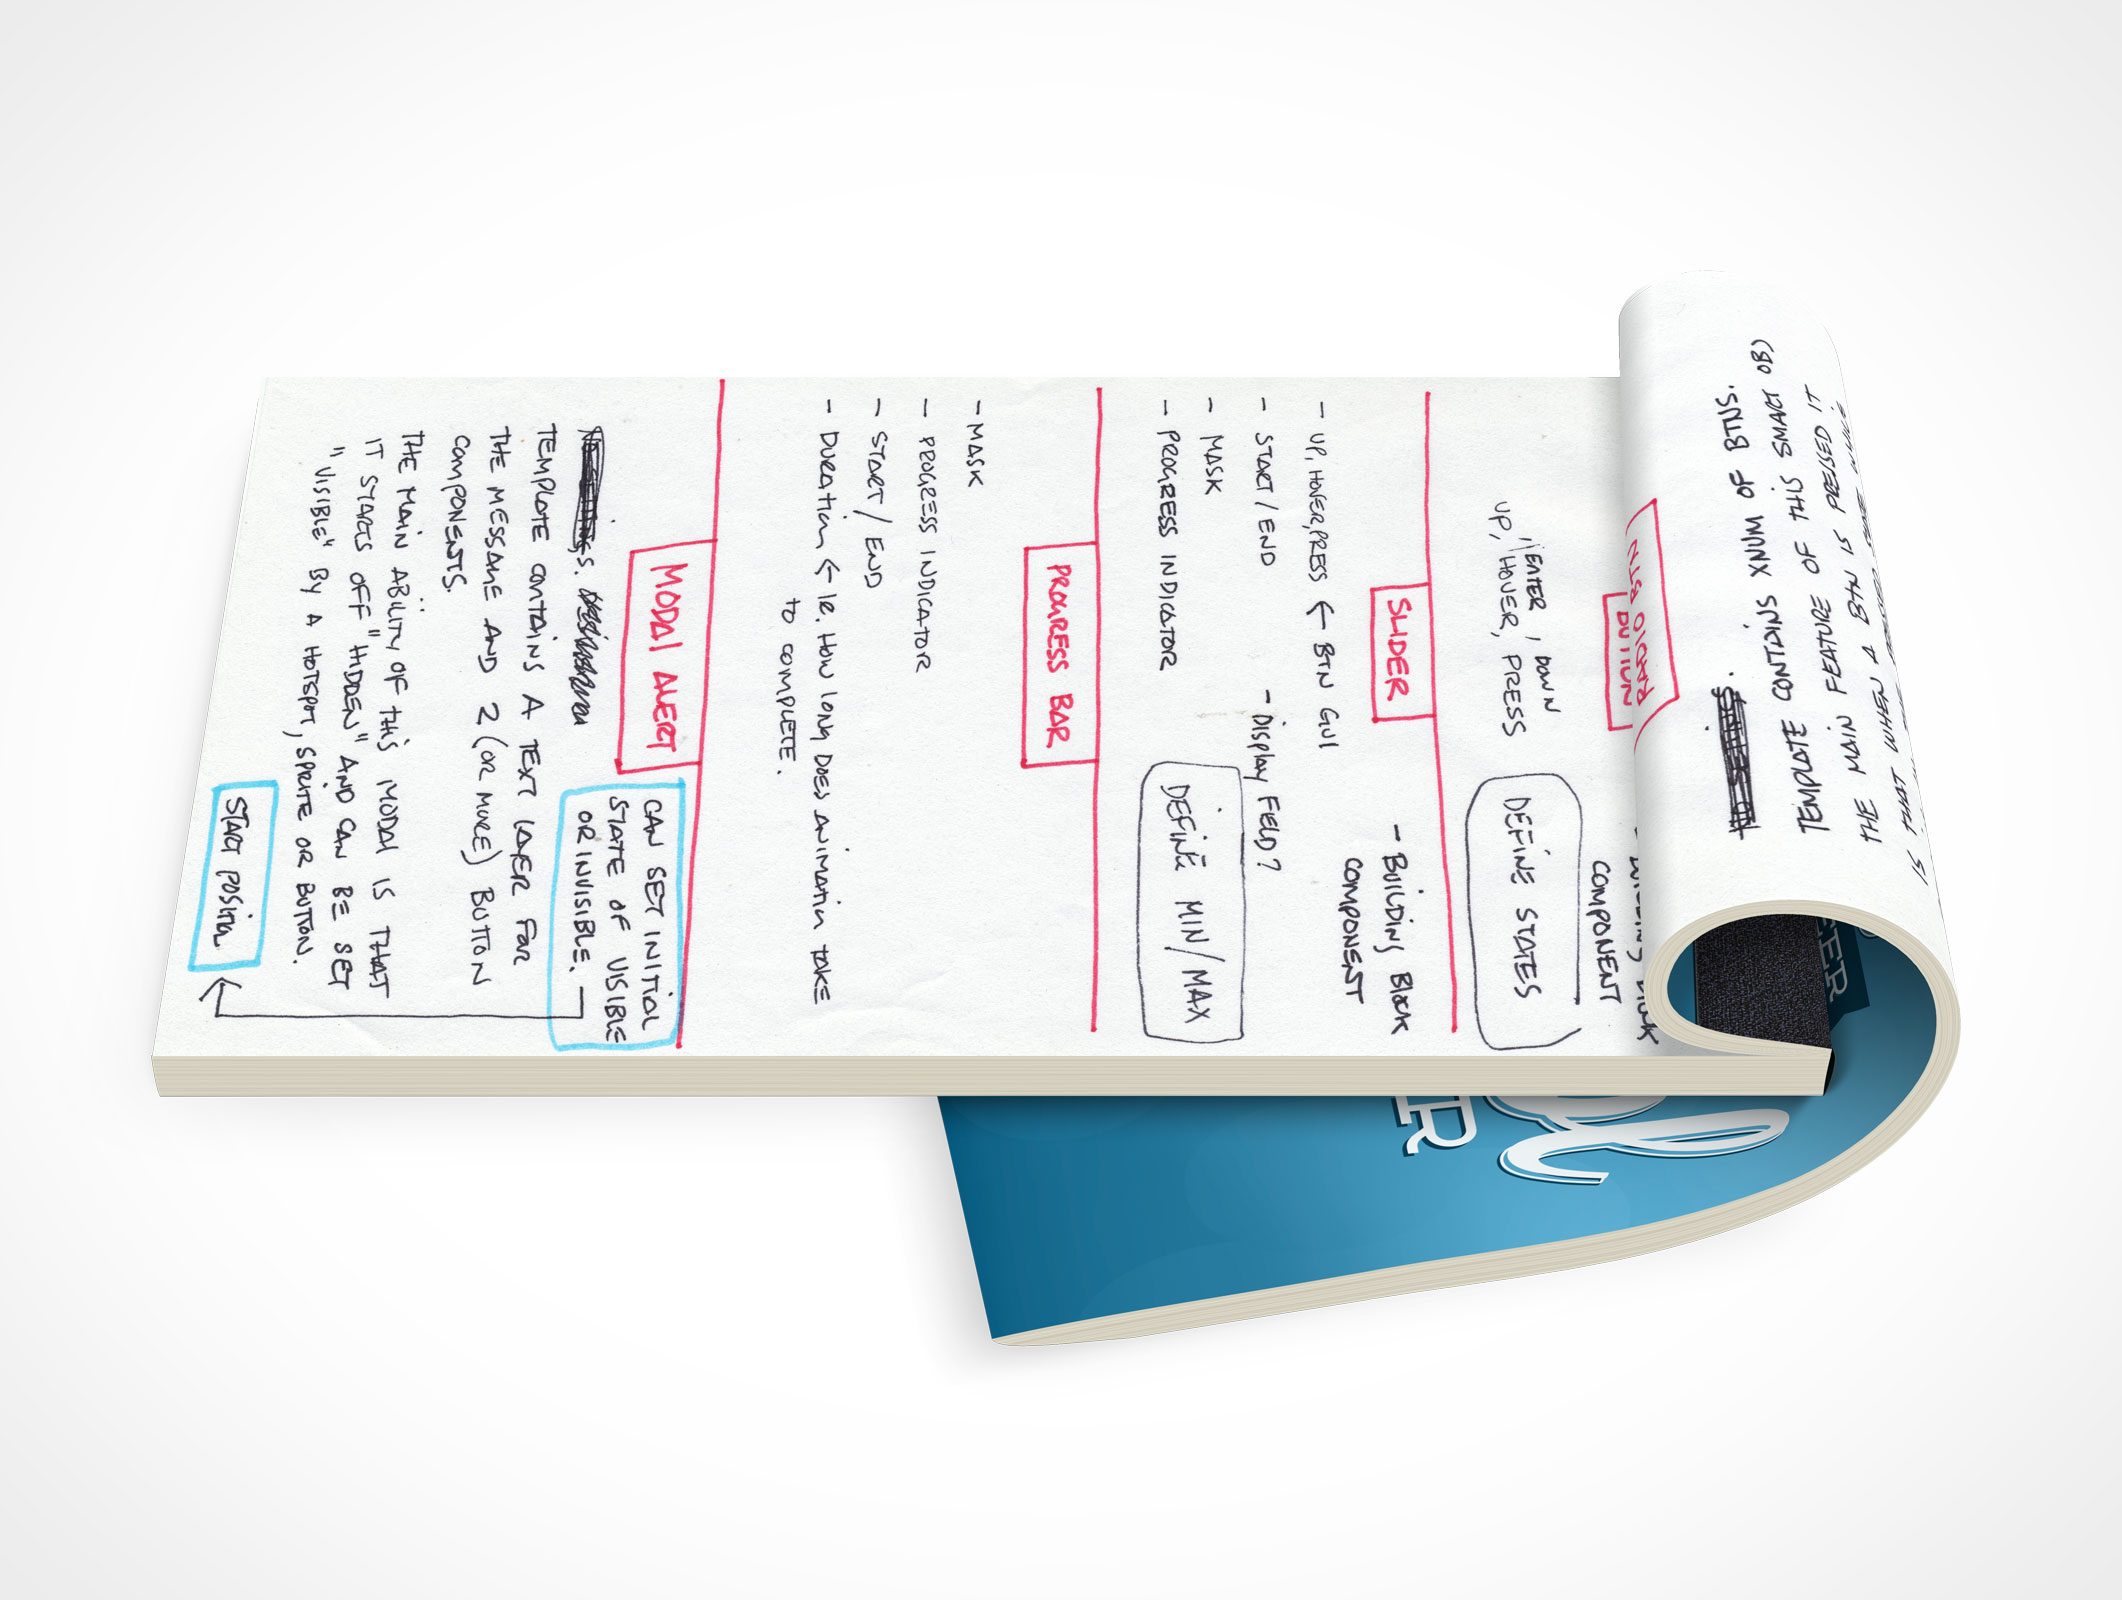 BUTTON
- BUILDING BLOCK
COMPONENT
ENTER, DOWN
UP, HOVER, PRESS
DEFINE STATES
SLIDER
- BUILDING BLOCK
COMPONENT
- UP, HOVER, PRESS ← BTN GUI
- START / END
- DISPLAY FIELD?
- MASK
- PROGRESS INDICATOR
DEFINE MIN/MAX
PROGRESS BAR
- MASK
- PROGRESS INDICATOR
- START / END
- DURATION ← IE. HOW LONG DOES ANIMATION TAKE
TO COMPLETE.
MODAL ALERT
CAN SET INITIAL
STATE OF VISIBLE
OR INVISIBLE.
TEMPLATE CONTAINS A TEXT LAYER FOR
THE MESSAGE AND 2 (OR MORE) BUTTON
COMPONENTS.
THE MAIN ABILITY OF THIS MODAL IS THAT
IT STARTS OFF "HIDDEN" AND CAN BE SET
"VISIBLE" BY A HOTSPOT, SPRITE OR BUTTON.
START POSITION
RADIO BTN
TEMPLATE CONTAINS XNUM OF BTNS.
THE MAIN FEATURE OF THIS SMART OBJ
IS THAT WHEN A BTN IS PRESSED IT